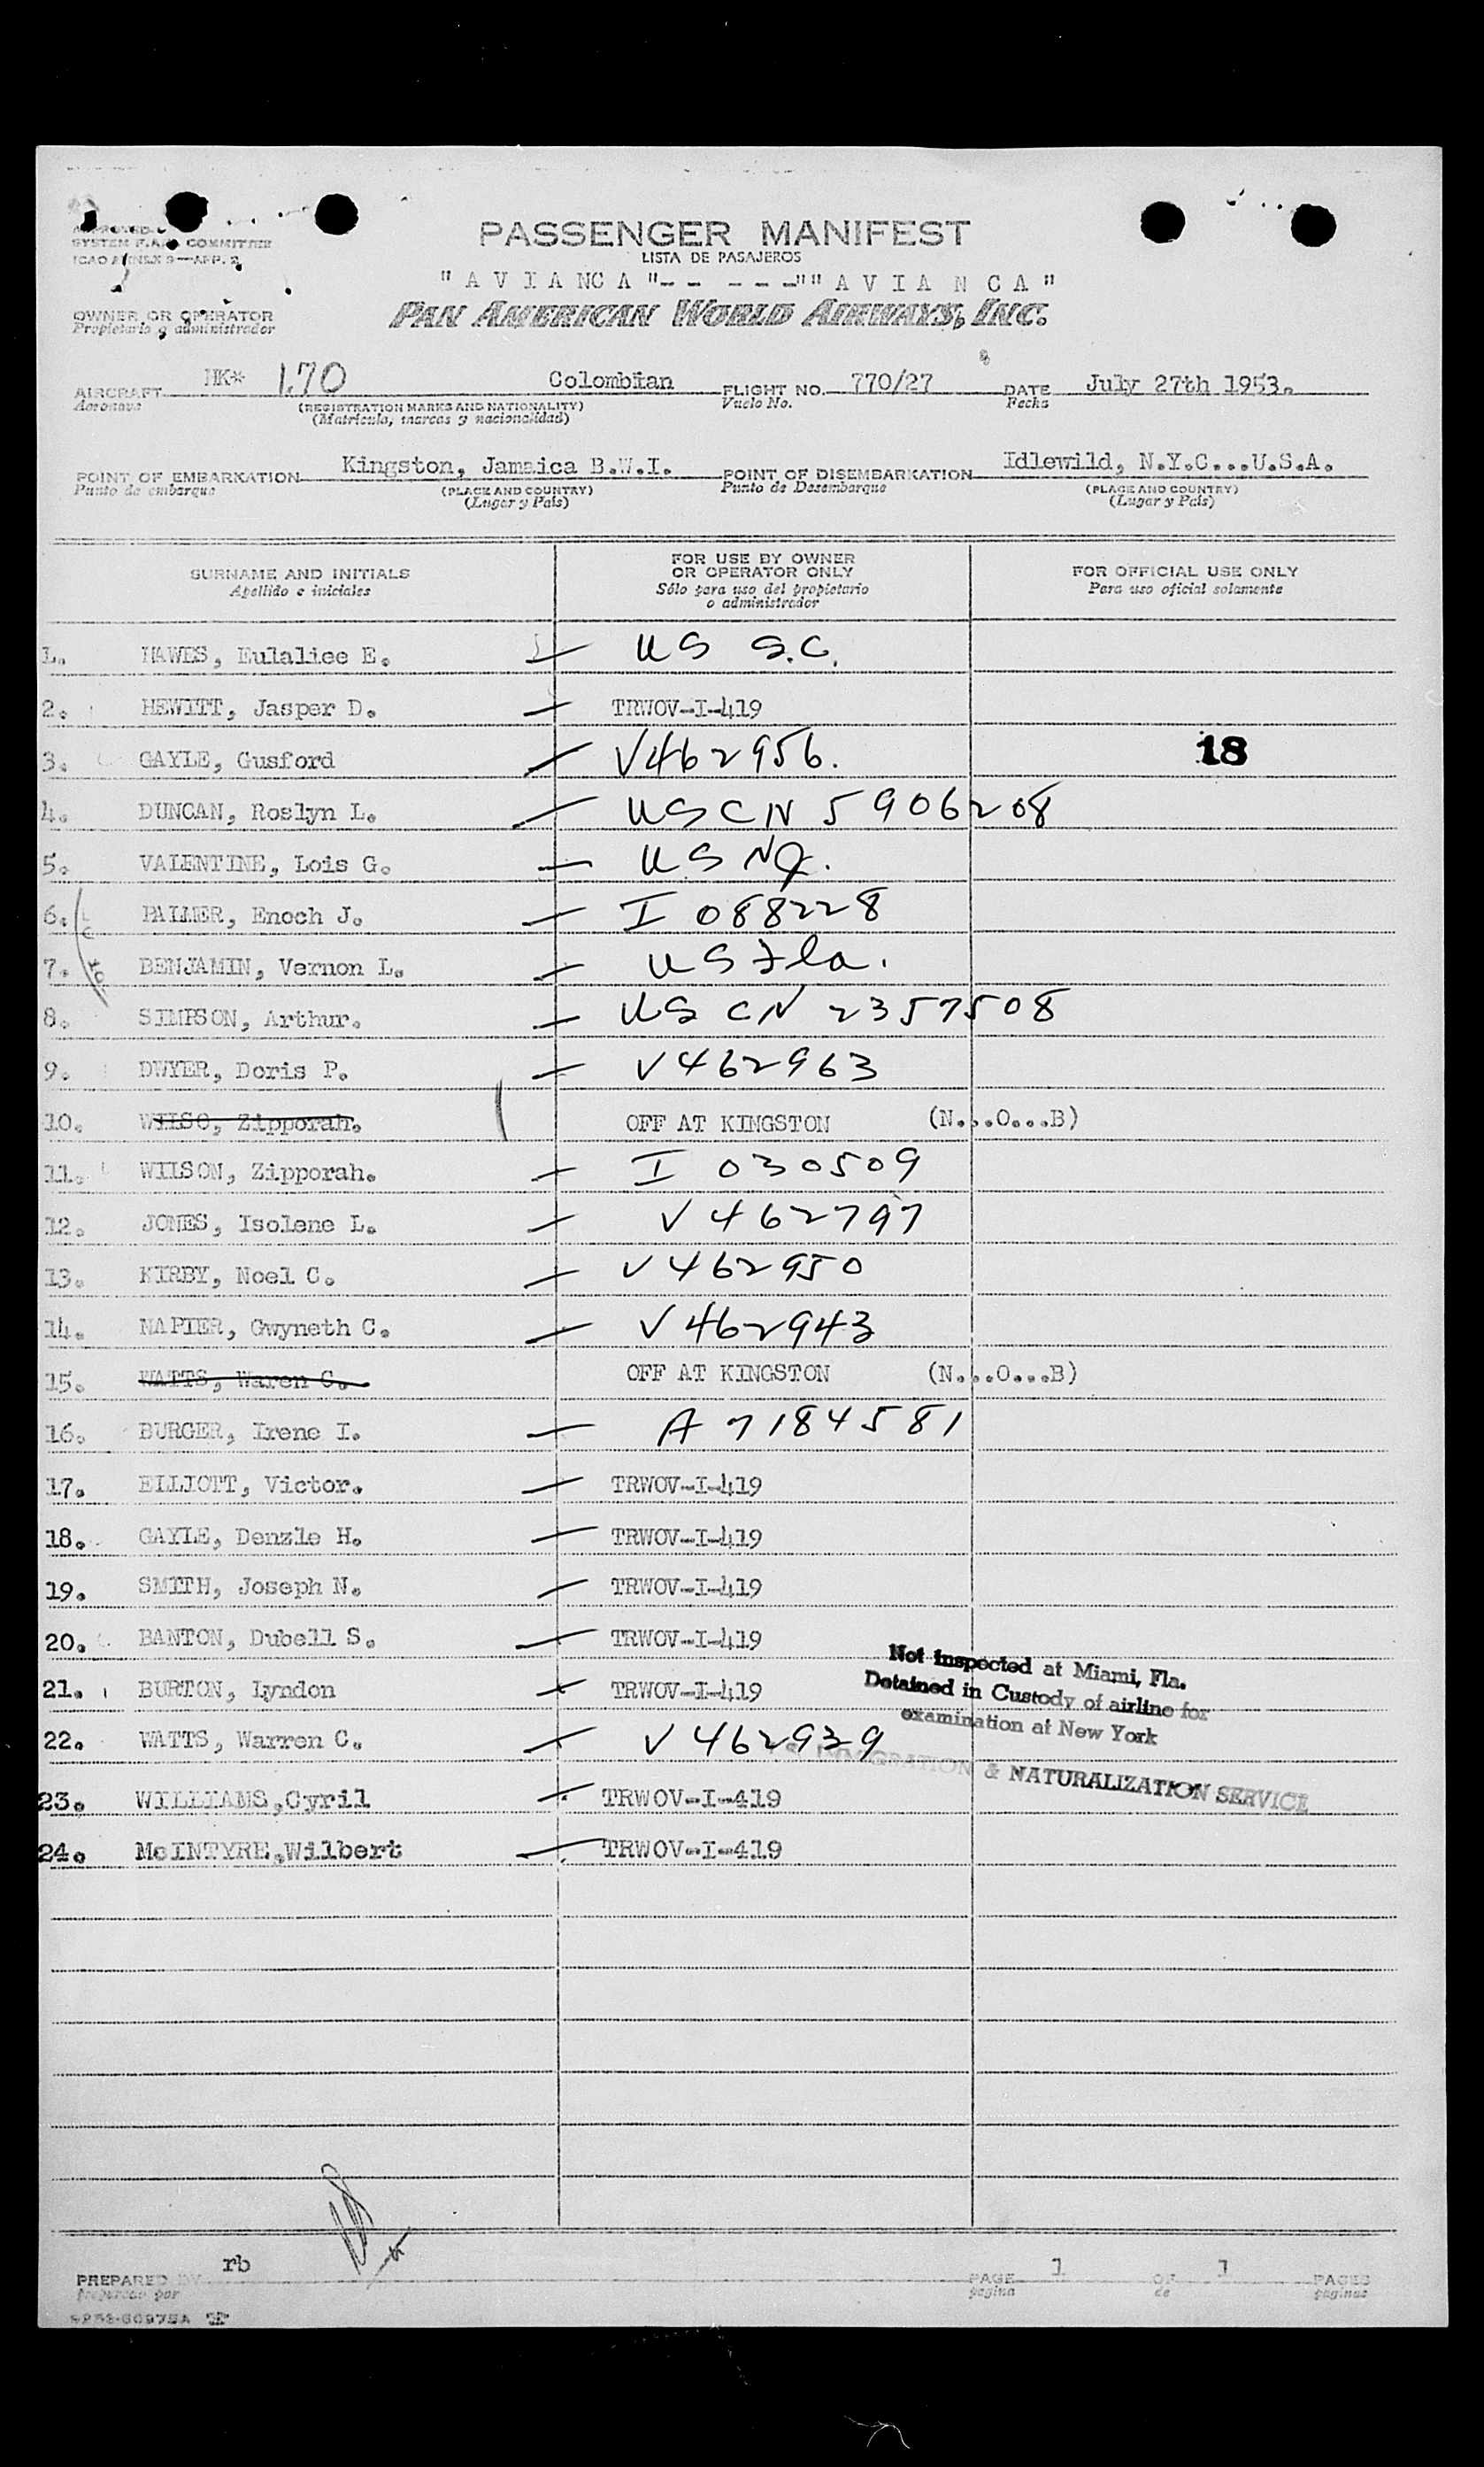 APPROVED
SYSTEM F.A.L. COMMITTEE
ICAO ANNEX 9—APP. 2
PASSENGER MANIFEST
LISTA DE PASAJEROS
"A V I A NC A "- - - - -""A V I A N C A"
OWNER OR OPERATOR
Propietario y administrador
PAN AMERICAN WORLD AIRWAYS, INC.
AIRCRAFT HK* 170 Colombian FLIGHT NO. 770/27 DATE July 27th 1953.
Aeronave (REGISTRATION MARKS AND NATIONALITY) Vuelo No. Fecha
(Matrícula, marcas y nacionalidad)
POINT OF EMBARKATION Kingston, Jamaica B.W.I. POINT OF DISEMBARKATION Idlewild, N.Y.C...U.S.A.
Punto de embarque (PLACE AND COUNTRY) Punto de Desembarque (PLACE AND COUNTRY)
(Lugar y País) (Lugar y País)
SURNAME AND INITIALS FOR USE BY OWNER OR OPERATOR ONLY FOR OFFICIAL USE ONLY
Apellido e iniciales Sólo para uso del propietario o administrador Para uso oficial solamente
1. HAWES, Eulaliee E. — US S.C.
2. HEWITT, Jasper D. — TRWOV-I-419
3. GAYLE, Gusford — V462956. 18
4. DUNCAN, Roslyn L. — US CN 5906208
5. VALENTINE, Lois G. — US NY.
6. PALMER, Enoch J. — I 088228
7. BENJAMIN, Vernon L. — US Fla.
8. SIMPSON, Arthur. — US CN 2357508
9. DWYER, Doris P. — V462963
10. WILSO, Zipporah. OFF AT KINGSTON (N...O...B)
11. WILSON, Zipporah. — I 030509
12. JONES, Isolene L. — V462797
13. KIRBY, Noel C. — V462950
14. NAPIER, Gwyneth C. — V462943
15. WATTS, Waren C. OFF AT KINGSTON (N...O...B)
16. BURGER, Irene I. — A7184581
17. ELLIOTT, Victor. — TRWOV-I-419
18. GAYLE, Denzle H. — TRWOV-I-419
19. SMITH, Joseph N. — TRWOV-I-419
20. BANTON, Dubell S. — TRWOV-I-419
21. BURTON, Lyndon — TRWOV-I-419
22. WATTS, Warren C. — V462939
Not inspected at Miami, Fla.
Detained in Custody of airline for
examination at New York
IMMIGRATION & NATURALIZATION SERVICE
23. WILLIAMS,Cyril — TRWOV-I-419
24. McINTYRE,Wilbert — TRWOV-I-419
PREPARED BY rb PAGE 1 OF 1 PAGES
preparado por pagina de paginas